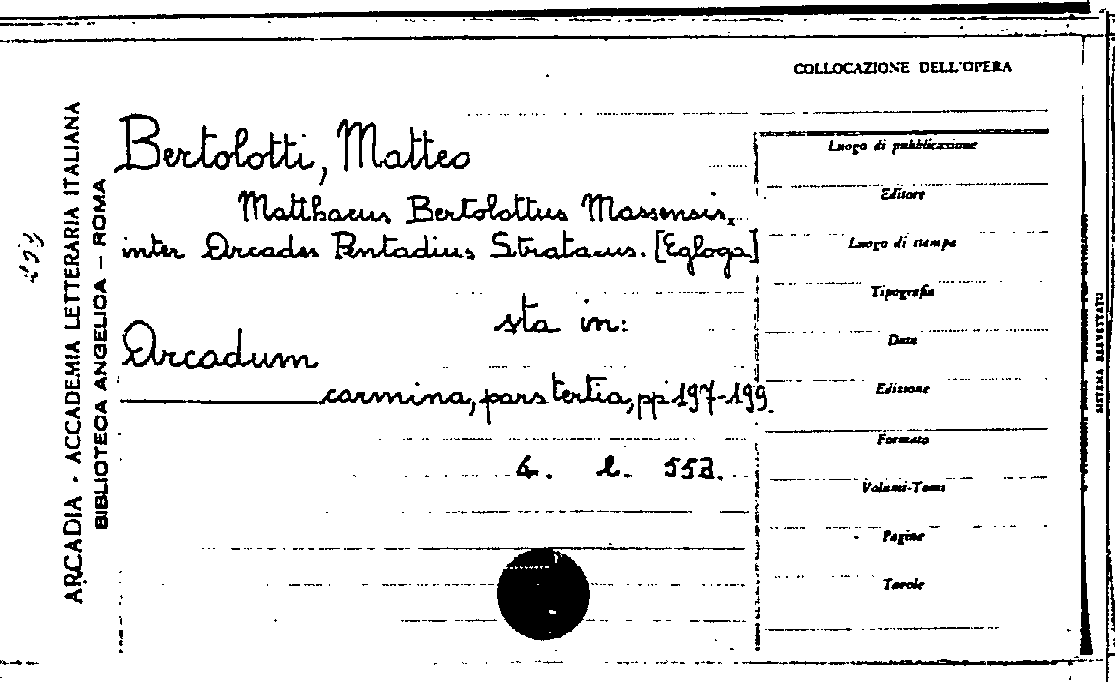 COLLOCAZIONE DELL'OPERA
ARCADIA - ACCADEMIA LETTERARIA ITALIANA
BIBLIOTECA ANGELICA – ROMA
Bertolotti, Matteo
Matthaeus Bertolottus Massensis,
inter Arcades Pentadius Strataeus. [Egloga]
sta in:
Arcadum
carmina, pars tertia, pp 197-199.
l. 553.
Luogo di pubblicazione
Editore
Luogo di stampa
Tipografia
Data
Edizione
Formato
Volumi-Tomi
Pagine
Tavole
SISTEMA BREVETTATO